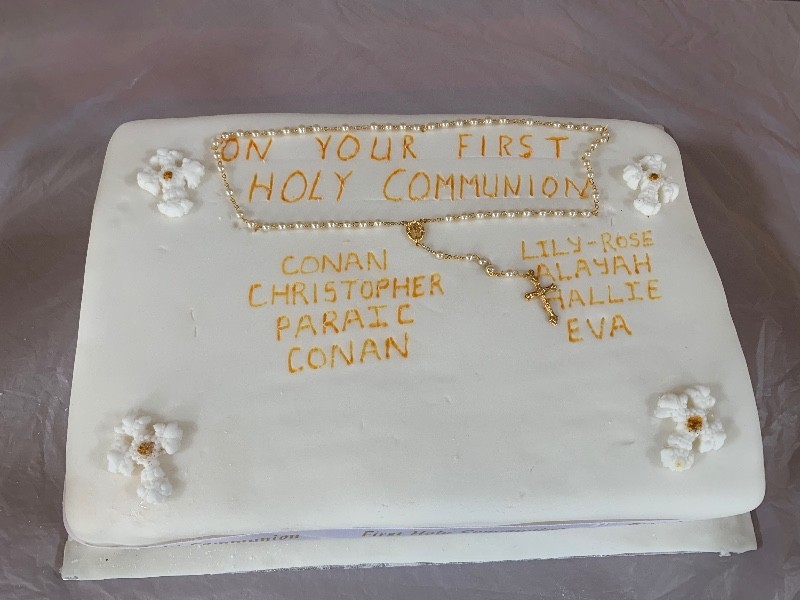 ON YOUR FIRST
HOLY COMMUNION
CONAN
CHRISTOPHER
PARAIC
CONAN
LILY-ROSE
ALAYAH
HALLIE
EVA
First Holy